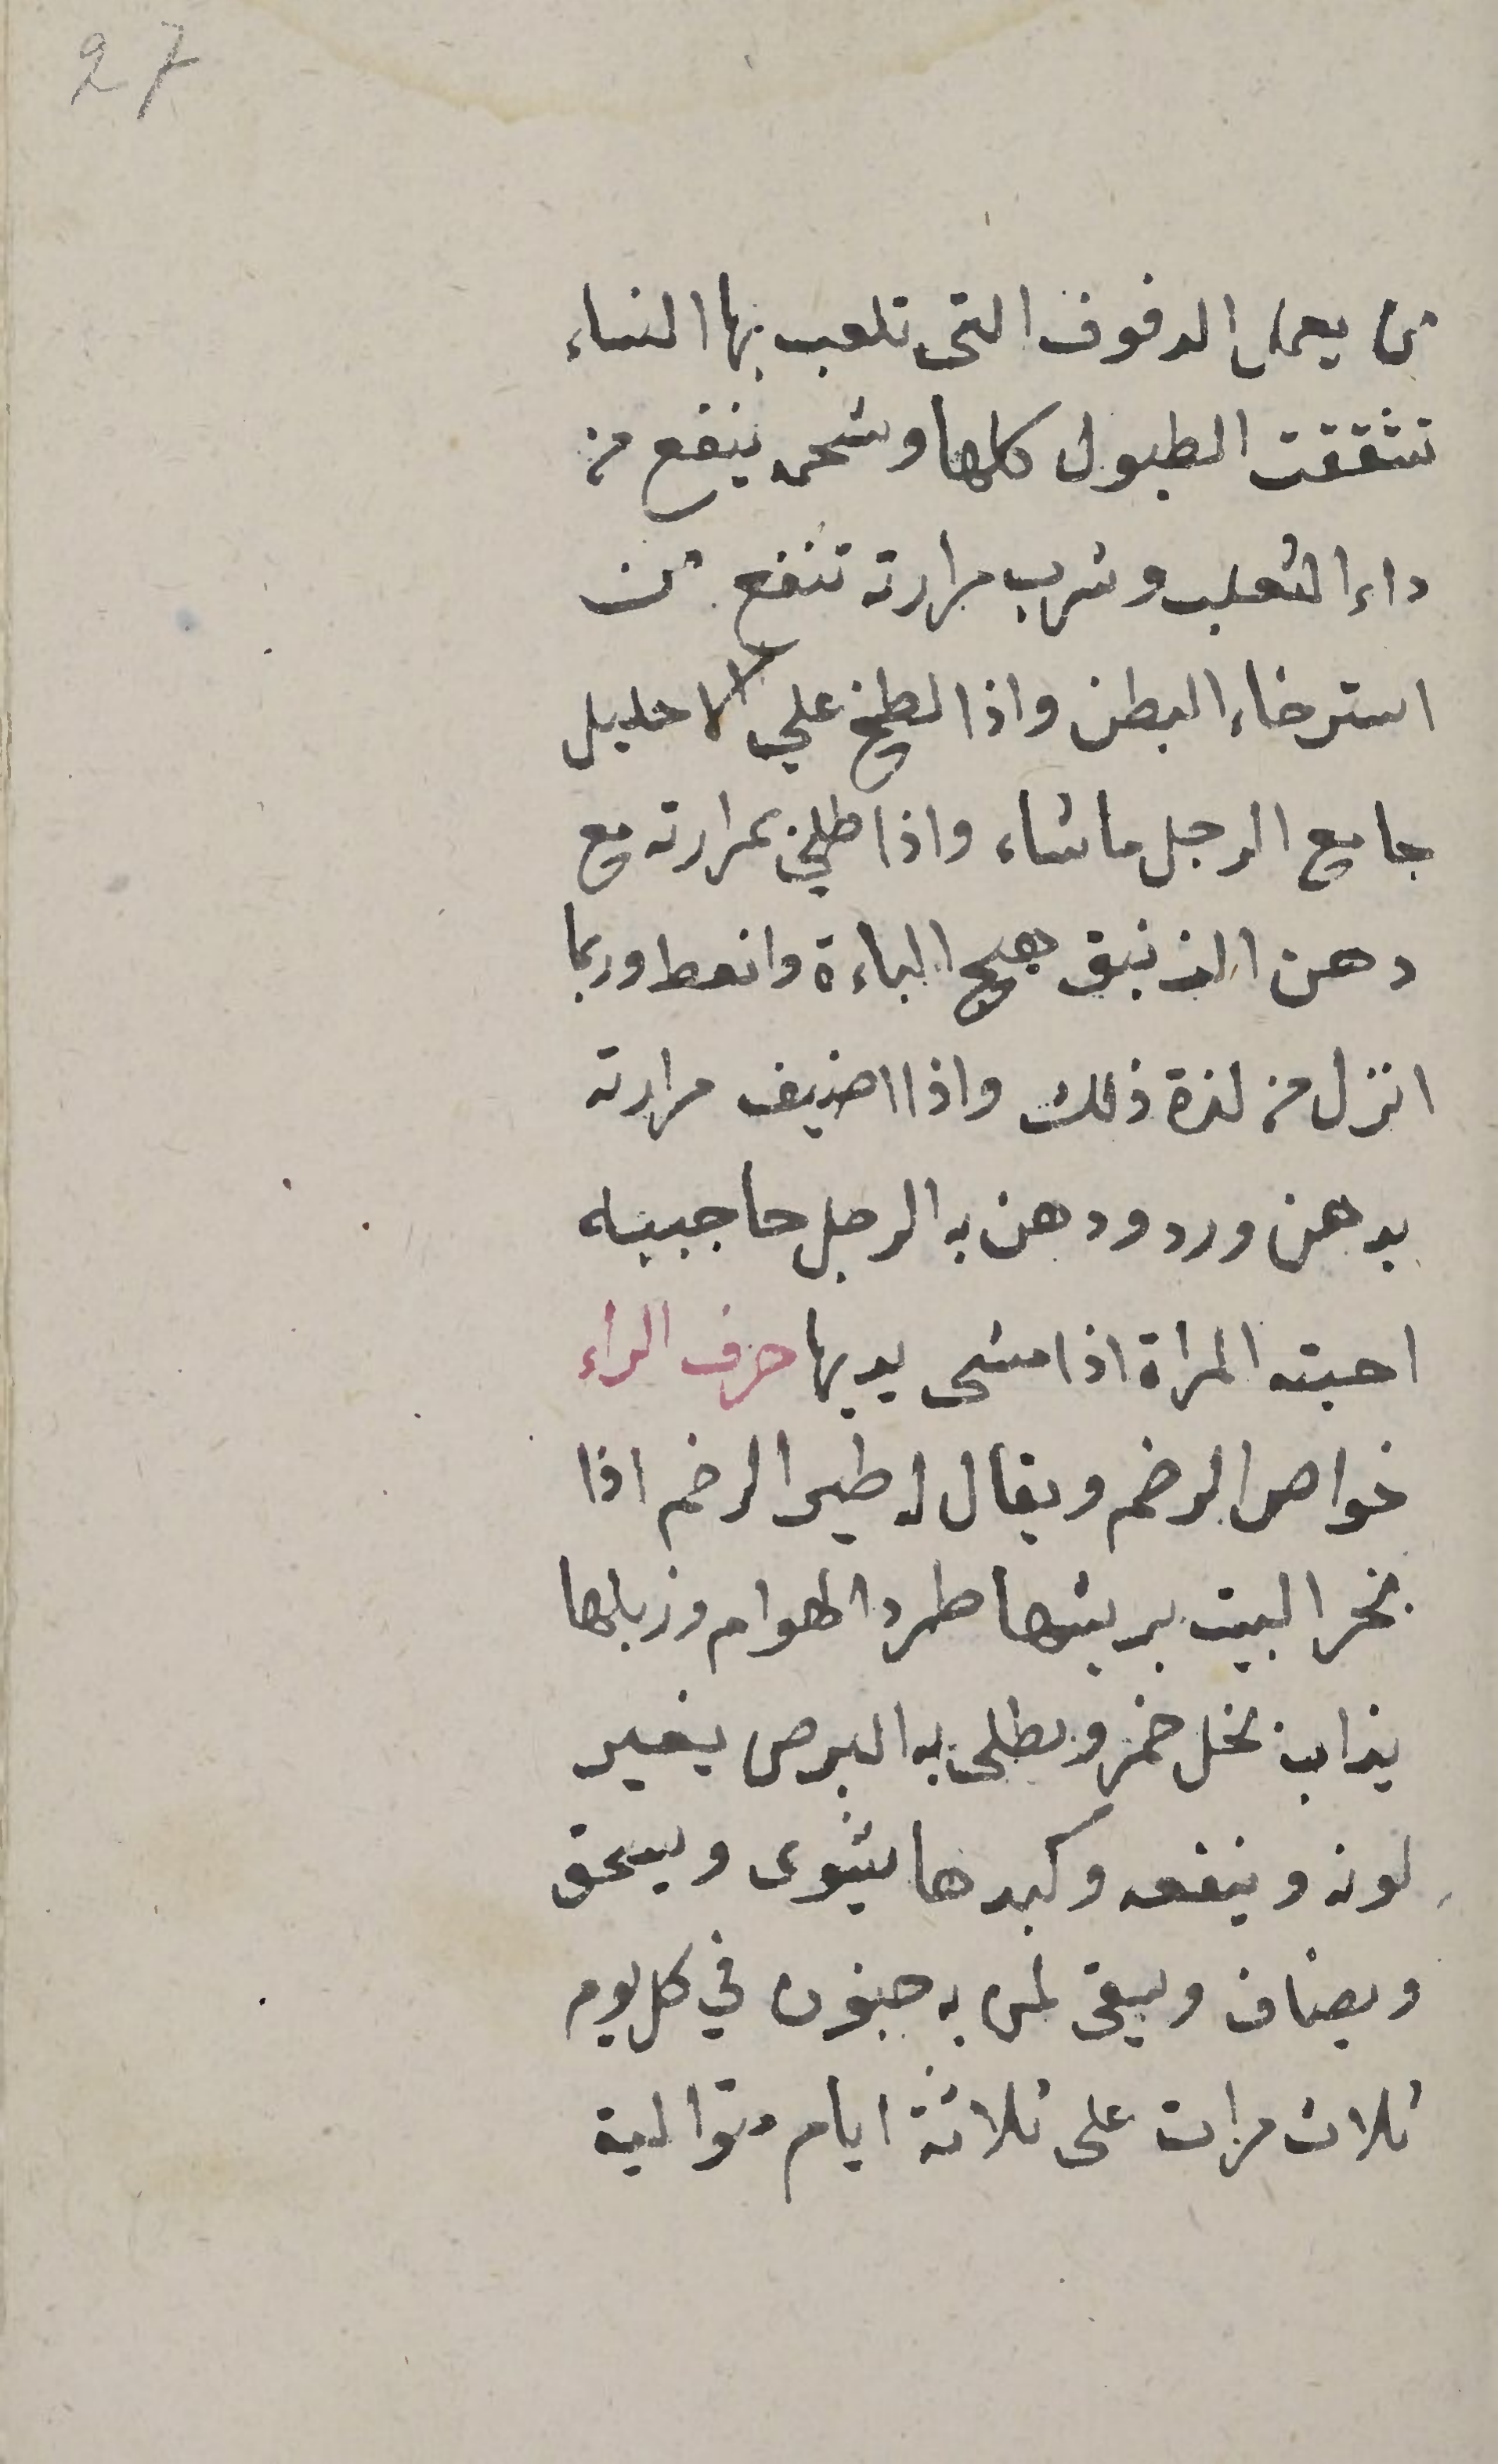 27
من يعمل الدفوف التى تلعب بها النساء
تشققت الطبول كلها وشحمه ينفع من
داء الثعلب وشرب مرارته تنفع من
استرخاء البطن واذا لطخ علي الاحليل
جامع الرجل ماشاء واذا طلخ بمرارته مع
دهن الزنبق هيج الباءة وانعط وربما
انزل من لذة ذلك واذا اضيف مرارته
بدهن ورد ودهن به الرجل حاجبيه
احبته المراة اذا مشى يديها حرف الراء
خواص الرخم ويقال له طير الرخم اذا
بخر البيت بريشها طرد الهوام وزبلها
يذاب بخل خمر ويطلى به البرص يغير
لونه وينفعه وكبدها يشوى ويسحق
ويضاف ويسقى لمن به جنون في كل يوم
ثلاث مرات على ثلاثة ايام متوالية